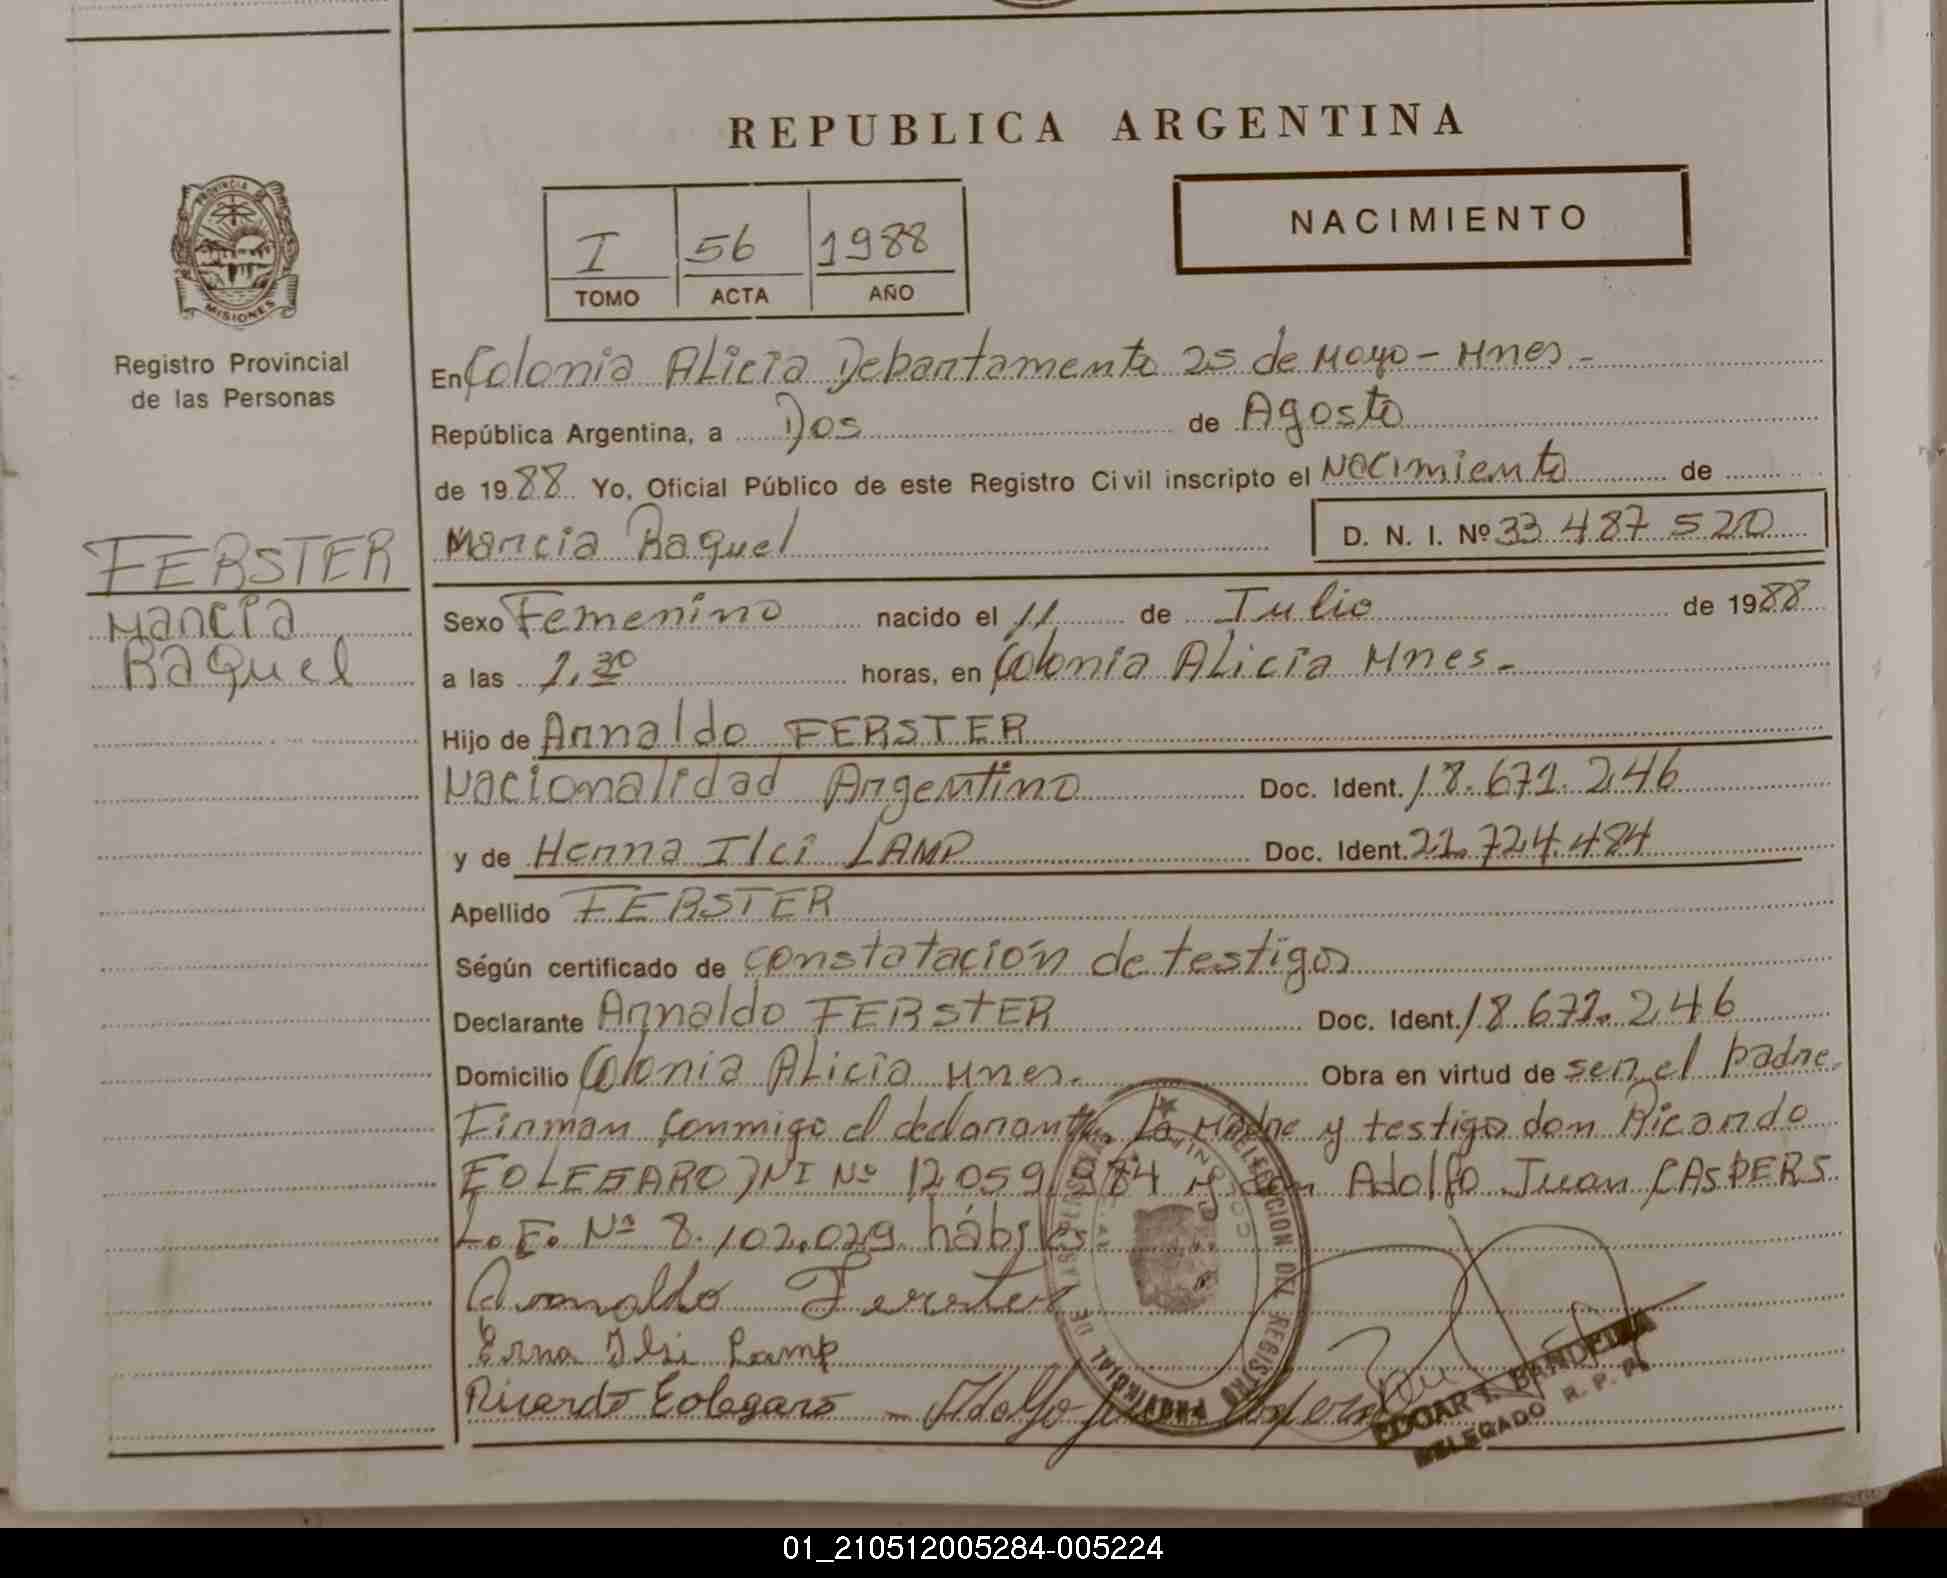 REPUBLICA ARGENTINA
NACIMIENTO
I 56 1988
TOMO ACTA AÑO
PROVINCIA DE
MISIONES
Registro Provincial
de las Personas
FERSTER
Marcia
Raquel
En Colonia Alicia Departamento 25 de Mayo - Mnes.-
República Argentina, a Dos de Agosto
de 1988 Yo, Oficial Público de este Registro Civil inscripto el Nacimiento de
Marcia Raquel D. N. I. Nº 33 487 520
Sexo Femenino nacido el 11 de Julio de 1988
a las 1.30 horas, en Colonia Alicia Mnes.-
Hijo de Arnaldo FERSTER
Nacionalidad Argentino Doc. Ident. 18.671.246
y de Herna Ilci LAMP Doc. Ident. 21.724.484
Apellido FERSTER
Ségún certificado de constatación de testigos
Declarante Arnaldo FERSTER Doc. Ident. 18.671.246
Domicilio Colonia Alicia Mnes. Obra en virtud de ser el padre.
Firman conmigo el declarante, La Madre y testigo don Ricardo
EOLEGARO DNI Nº 12.059.984 y don Adolfo Juan CASPERS
L.E. Nº 8.102.029 hábiles
Arnaldo Ferster
Erna Ilsi Lamp
Ricardo Eolegaro - Adolfo Caspers
DELEGACION DEL REGISTRO PROVINCIAL DE LAS PERSONAS
EDGAR I. BANDEIRA
DELEGADO R. P. P.
01_210512005284-005224